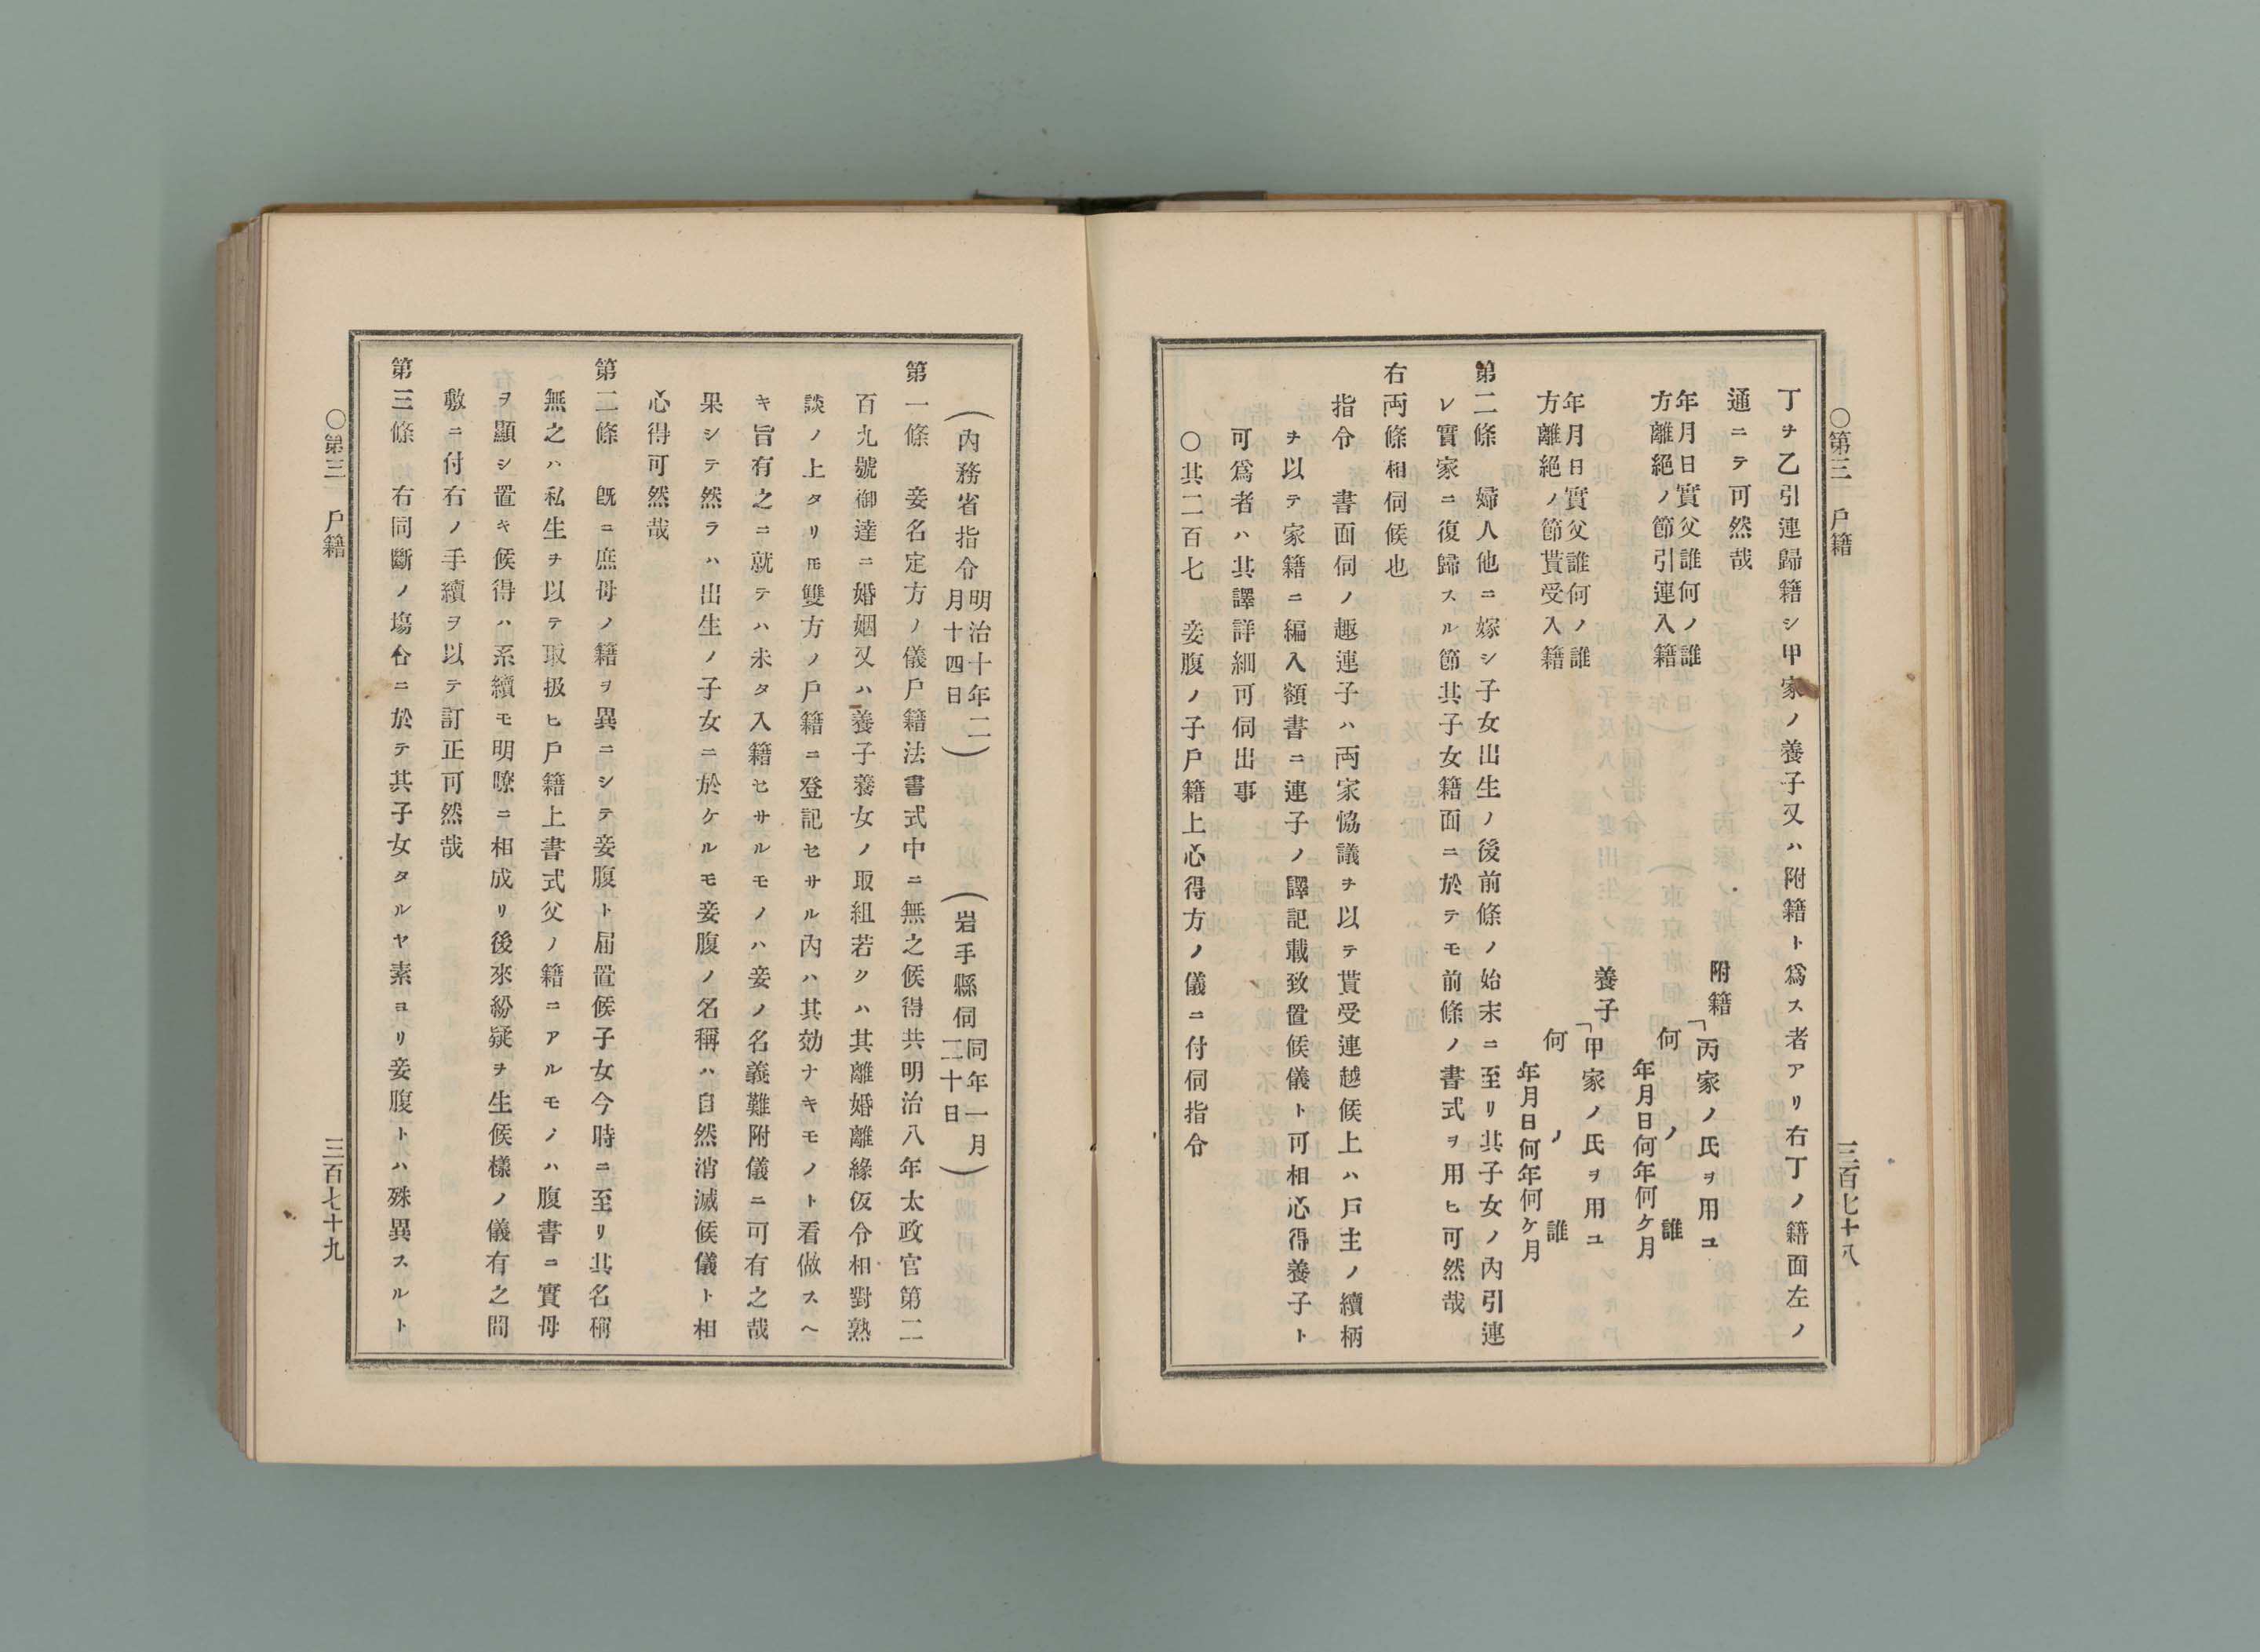 ○第三　戶籍　三百七十八
丁ヲ乙引連歸籍シ甲家ノ養子又ハ附籍ト爲ス者アリ右丁ノ籍面左ノ
通ニテ可然哉
附籍
「丙家ノ氏ヲ用ユ
年月日實父誰何ノ誰
方離絕ノ節引連入籍
何　ノ　誰
年月日何年何ケ月
養子
「甲家ノ氏ヲ用ユ
年月日實父誰何ノ誰
方離絕ノ節貰受入籍
何　ノ　誰
年月日何年何ケ月
第二條　婦人他ニ嫁シ子女出生ノ後前條ノ始末ニ至リ其子女ノ內引連
レ實家ニ復歸スル節其子女籍面ニ於テモ前條ノ書式ヲ用ヒ可然哉
右両條相伺候也
指令　書面伺ノ趣連子ハ両家恊議ヲ以テ貰受連越候上ハ戶主ノ續柄
ヲ以テ家籍ニ編入額書ニ連子ノ譯記載致置候儀ト可相心得養子ト
可爲者ハ其譯詳細可伺出事
○其二百七　妾腹ノ子戶籍上心得方ノ儀ニ付伺指令
（內務省指令明治十年二月十四日）　（岩手縣伺同年一月二十日）
第一條　妾名定方ノ儀戶籍法書式中ニ無之候得共明治八年太政官第二
百九號御達ニ婚姻又ハ養子養女ノ取組若クハ其離婚離緣仮令相對熟
談ノ上タリㇳモ雙方ノ戶籍ニ登記セサル內ハ其効ナキモノト看做スヘ
キ旨有之ニ就テハ未タ入籍セサルモノハ妾ノ名義難附儀ニ可有之哉
果シテ然ラハ出生ノ子女ニ於ケルモ妾腹ノ名稱ハ自然消滅候儀ト相
心得可然哉
第二條　旣ニ庶母ノ籍ヲ異ニシテ妾腹ト屆置候子女今時ニ至リ其名稱
無之ハ私生ヲ以テ取扱ヒ戶籍上書式父ノ籍ニアルモノハ腹書ニ實母
ヲ顯シ置キ候得ハ系續モ明瞭ニ相成リ後來紛疑ヲ生候樣ノ儀有之間
敷ニ付右ノ手續ヲ以テ訂正可然哉
第三條　右同斷ノ塲合ニ於テ其子女タルヤ素ヨリ妾腹トハ殊異スルト
○第三　戶籍　三百七十九